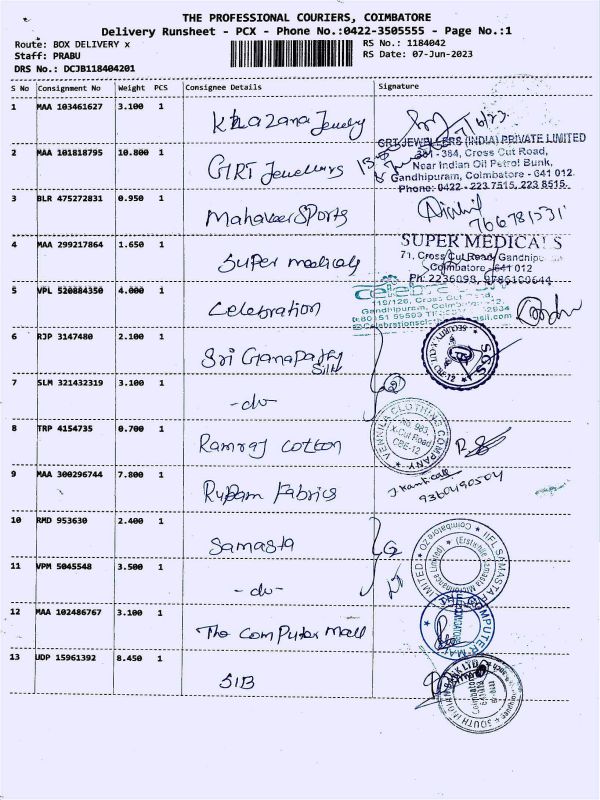 THE PROFESSIONAL COURIERS, COIMBATORE
Delivery Runsheet - PCX - Phone No.:0422-3505555 - Page No.:1
Route: BOX DELIVERY x
RS No.: 1184042
Staff: PRABU
RS Date: 07-Jun-2023
DRS No.: DCJB118404201
S No Consignment No Weight PCS Consignee Details Signature
1 MAA 103461627 3.100 1 Khazana Jewelry 7/6/23
2 MAA 101818795 10.800 1 GRT Jewellers
GRT JEWELLERS (INDIA) PRIVATE LIMITED
381 - 384, Cross Cut Road,
Near Indian Oil Petrol Bunk,
Gandhipuram, Coimbatore - 641 012.
Phone: 0422 - 223 7515, 223 8515.
3 BLR 475272831 0.950 1 Mahaveer Sports
4 MAA 299217864 1.650 1 Super medicals
SUPER MEDICALS
71, Cross Cut Road, Gandhipu
Coimbatore - 641 012
5 VPL 520884350 4.000 1 Celebration
6 RJP 3147480 2.100 1 Sri Ganapathy
Silk
SGS
SECURITY X-CUT CBE-12
7 SLM 321432319 3.100 1 -do-
8 TRP 4154735 0.700 1 Ramraj Cotton
VENKILA CLOTHING COMPANY
No. 983,
X-Cut Road
CBE-12
9 MAA 300296744 7.800 1 Rupam Fabrics
9360490504
10 RMD 953630 2.400 1 Samasta
IIFL SAMASTA
11 VPM 5045548 3.500 1 -do-
12 MAA 102486767 3.100 1 The Computer Mall
THE COMPUTER MALL
13 UDP 15961392 8.450 1 SIB